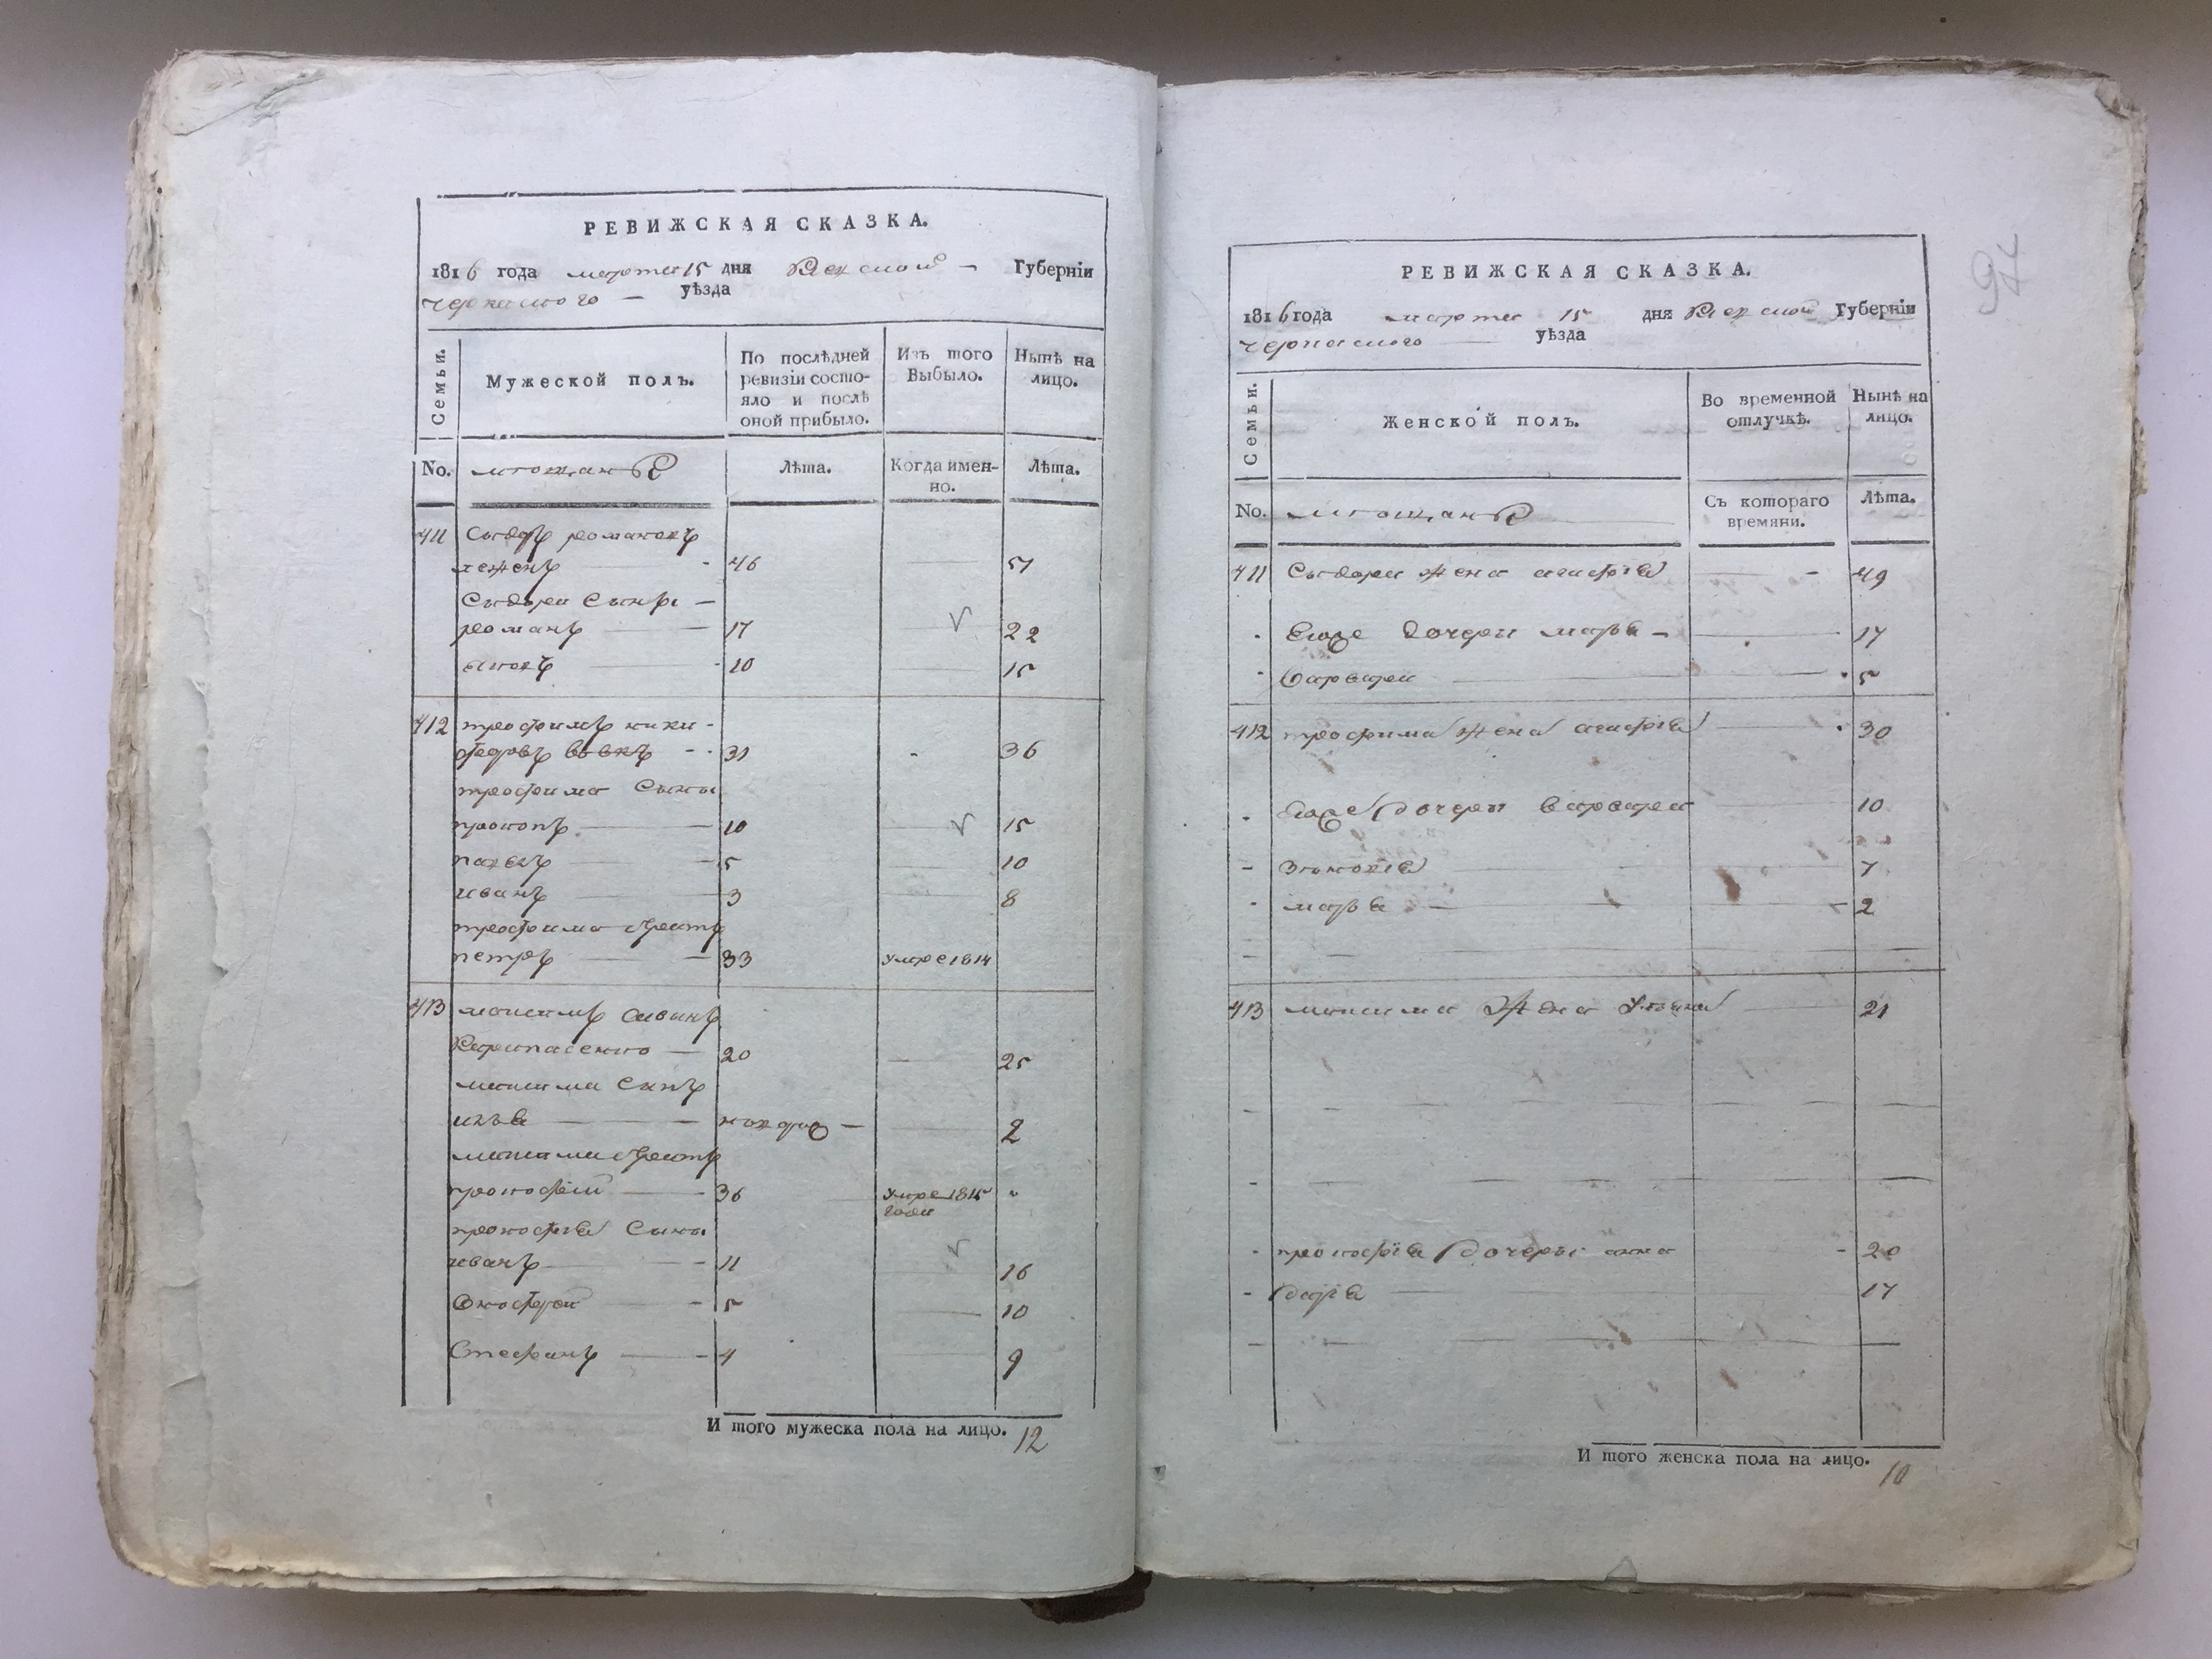 РЕВИЖСКАЯ СКАЗКА.
1816 года марта 15 дня Киевской Губернїи
черкаского уѣзда
Семьи.
Мужеской полъ.
По послѣдней ревизїи состояло и послѣ оной прибыло.
Изъ того Выбыло.
Нынѣ на лицо.
No.
мещанѣ
Лѣта.
Когда именно.
Лѣта.
411 Сыдоръ романовъ
46 51
Сыдора Сынъ
романъ 17 22
10 15
412 трофимъ ники-
феровъ вовкъ 31 36
трофима Сыны
прокопъ 10 15
павелъ 5 10
иванъ 3 8
трофима братъ
петръ 33 умре 1814
413 максимъ
20 25
максима Сынъ
илья 2
максима братъ
прокофѣй 36 умре 1815
года
прокофїя Сыны
иванъ 11 16
Онофрей 5 10
Стефанъ 4 9
И того мужеска пола на лицо. 12
94
РЕВИЖСКАЯ СКАЗКА.
1816 года марта 15 дня Киевской Губернїи
черкаского уѣзда
Семьи.
Женской полъ.
Во временной отлучкѣ.
Нынѣ на лицо.
No.
мещанѣ
Съ котораго времяни.
Лѣта.
411 Сыдора жена агафїя 49
Егоже дочери марья 17
варвара 5
412 трофима жена агафїя 30
Егоже дочери варвара 10
зѣновїя 7
марья 2
413 максима жена Улїяна 21
прокофїя дочери анна 20
дарїя 17
И того женска пола на лицо. 10